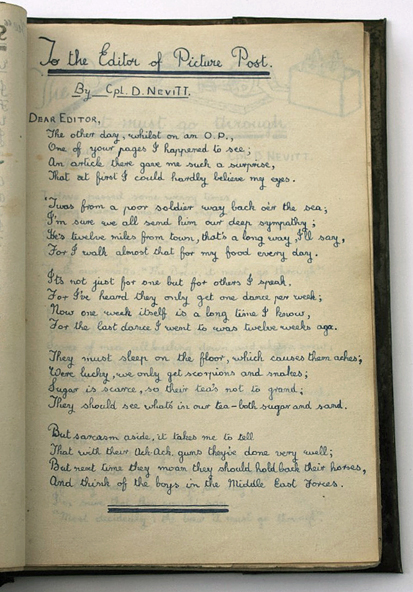 To the Editor of Picture Post.
By Cpl. D. Nevitt.
DEAR EDITOR,
The other day, whilst on an O.P.,
One of your pages I happened to see;
An article there gave me such a surprise,
That at first I could hardly believe my eyes.
'Twas from a poor soldier way back o'er the sea;
I'm sure we all send him our deep sympathy;
He's twelve miles from town, that's a long way, I'll say,
For I walk almost that for my food every day.
It's not just for one but for others I speak.
For I've heard they only get one dance per week;
Now one week itself is a long time I know,
For the last dance I went to was twelve weeks ago.
They must sleep on the floor, which causes them aches;
We're lucky, we only get scorpions and snakes;
Sugar is scarce, so their tea's not to grand;
They should see what's in our tea - both sugar and sand.
But sarcasm aside, it takes me to tell
That with their Ack-Ack guns they've done very well;
But next time they moan they should hold back their horses,
And think of the boys in the Middle East Forces.